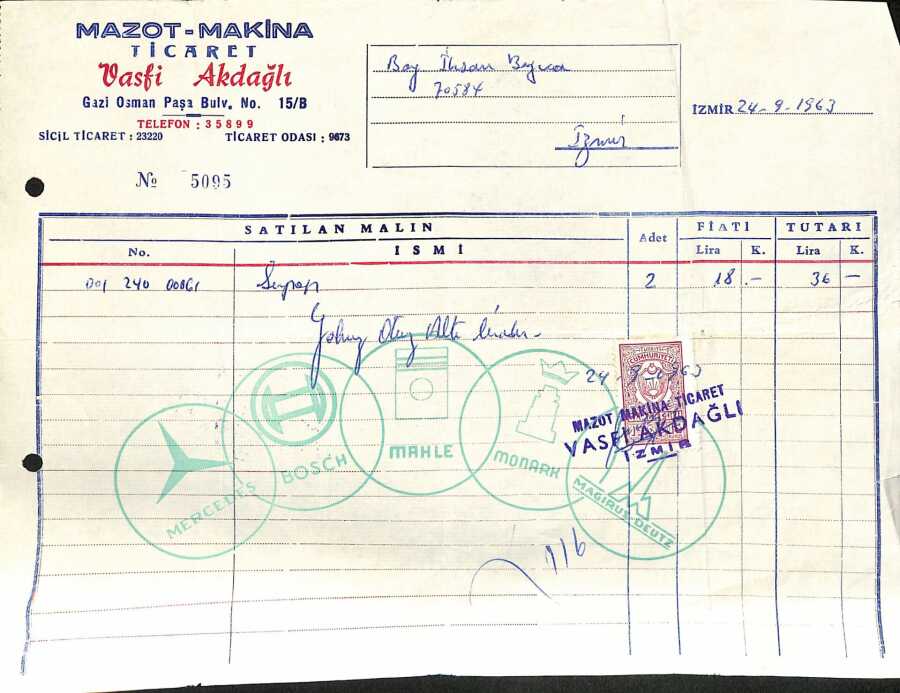 MAZOT-MAKİNA
TİCARET
Vasfi Akdağlı
Gazi Osman Paşa Bulv. No. 15/B
TELEFON : 35899
SİCİL TİCARET : 23220 TİCARET ODASI : 9673
Bay İhsan
70584
İzmir
İZMİR 24-9-1963
№ 5095
SATILAN MALIN
No. ISMİ Adet
FİATI TUTARI
Lira K. Lira K.
001 240 00861 2 18.- 36 -
Yalnız Otuz Altı liradır-
24-9-1963
CUMHURİYETİ
MAZOT MAKİNA TİCARET
VASFİ AKDAĞLI
İZMİR
MERCEDES
BOSCH
MAHLE
MONARK
MAGIRUS DEUTZ
116